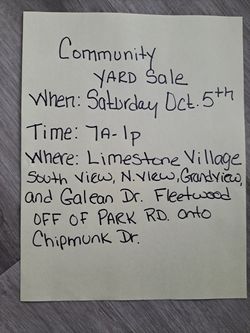 Community
YARD Sale
When: Saturday Oct. 5th
Time: 7A-1p
Where: Limestone Village
South View, N.View, Grandview,
and Galean Dr. Fleetwood
OFF OF PARK RD. onto
Chipmunk Dr.